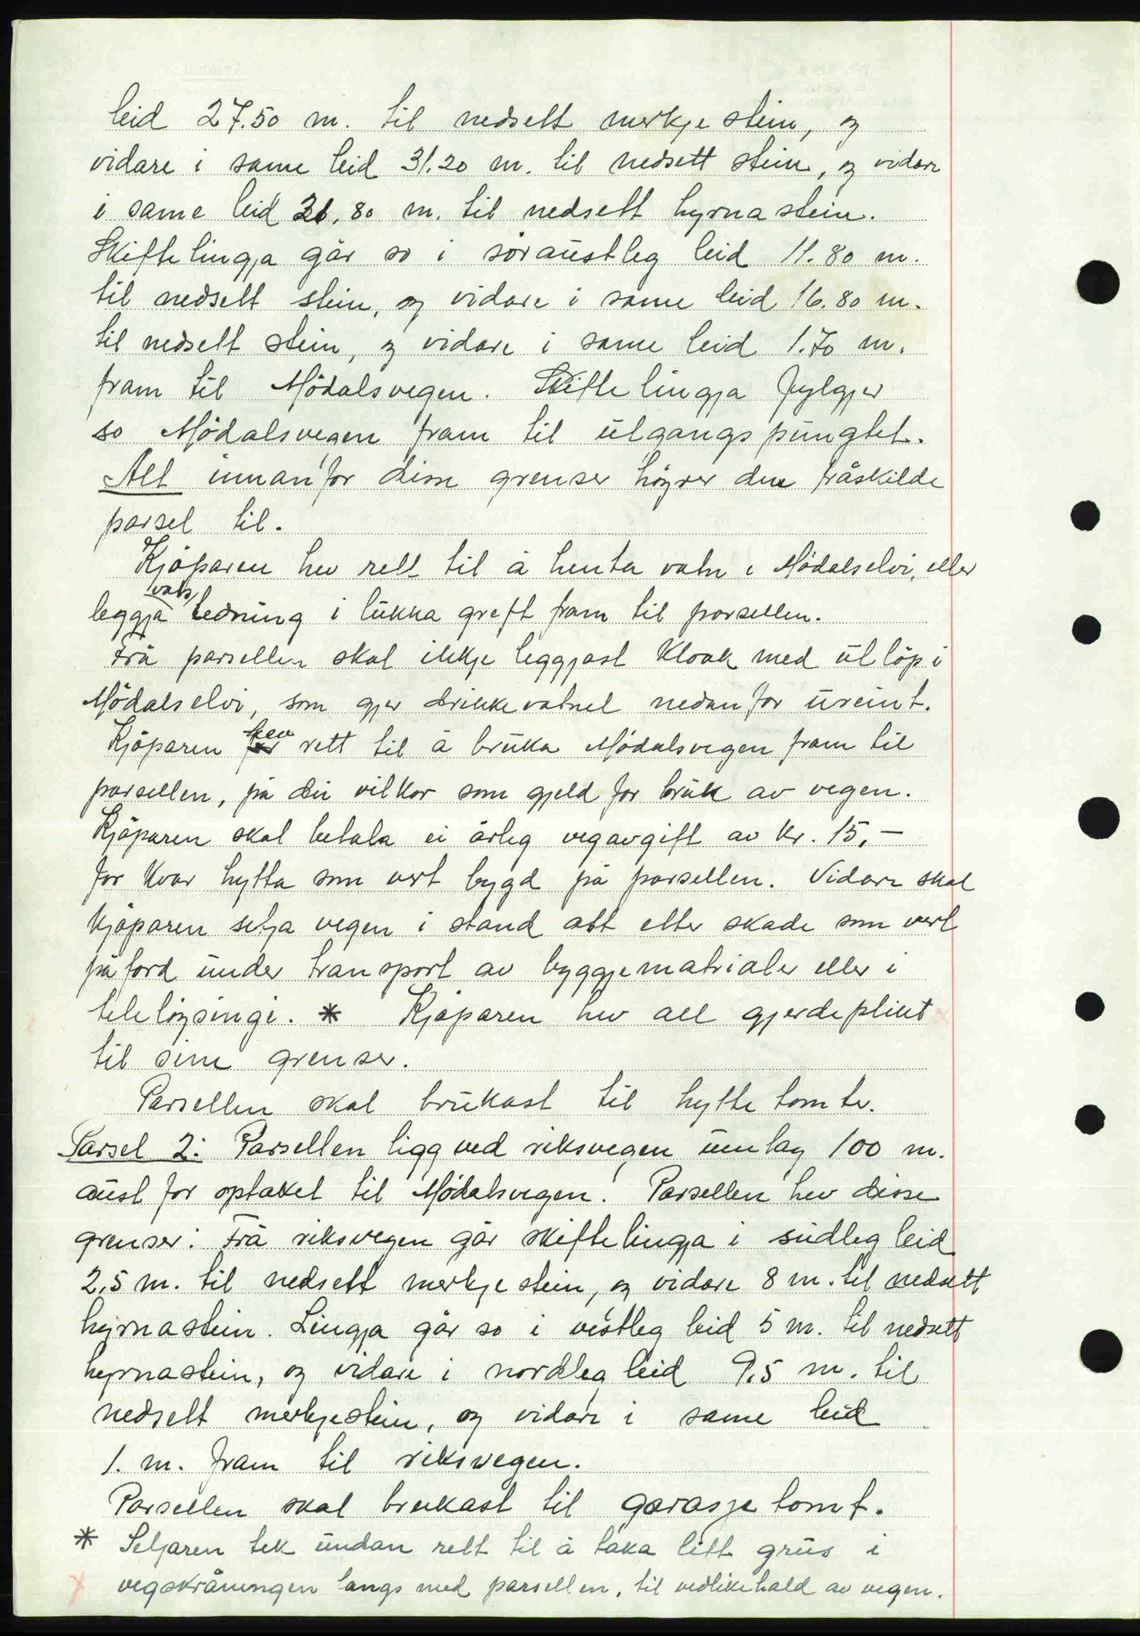 leid 27.50 m. til nedsett merkje stein, og
vidare i same leid 31.20 m. til nedsett stein, og vidare
i same leid 31.80 m. til nedsett hyrna stein.
Skiftelingja går so i söraustleg leid 11.80 m.
til nedsett stein, og vidare i same leid 16.80 m.
til nedsett stein, og vidare i same leid 1.70 m.
fram til Mödalsvegen. Skiftelingja fylgjer
so Mödalsvegen fram til utgangspungtet.
Alt innanfor disse grenser höyrer den fråskilde
parsel til.
Kjöparen hev rett til å henta vatn i Mödalselvi, eller
leggja vatsledning i lukka greft fram til parsellen.
Frå parsellen skal ikkje leggjast kloak med utlöp i
Mödalselvi, som gjer drikkevatnet nedanfor ureint.
Kjöparen hev rett til å bruka Mödalsvegen fram til
parsellen, på dei vilkor som gjeld for bruk av vegen.
Kjöparen skal betala ei årleg vegavgift av kr. 15,-
for kvar hytta som vert bygd på parsellen. Vidare skal
kjöparen setja vegen i stand att etter skade som vert
påförd under transport av byggjematrialer eller i
telelöysingi. * Kjöparen hev all gjerdeplikt
til sine grenser.
Parsellen skal brukast til hyttetomter.
Parsel 2: Parsellen ligg ved riksvegen umlag 100 m.
aust for optaket til Mödalsvegen. Parsellen hev disse
grenser: Frå riksvegen går skiftelingja i sudleg leid
2,5 m. til nedsett merkje stein, og vidare 8 m. til nedsett
hyrnastein. Lingja går so i vestleg leid 5 m. til nedsett
hyrnastein, og vidare i nordleg leid 9.5 m. til
nedsett merkjestein, og vidare i same leid
1. m. fram til riksvegen.
Parsellen skal brukast til garasje tomt.
* Seljaren tek undan rett til å taka litt grus i
vegskråningen langs med parsellen, til vedlikehald av vegen.